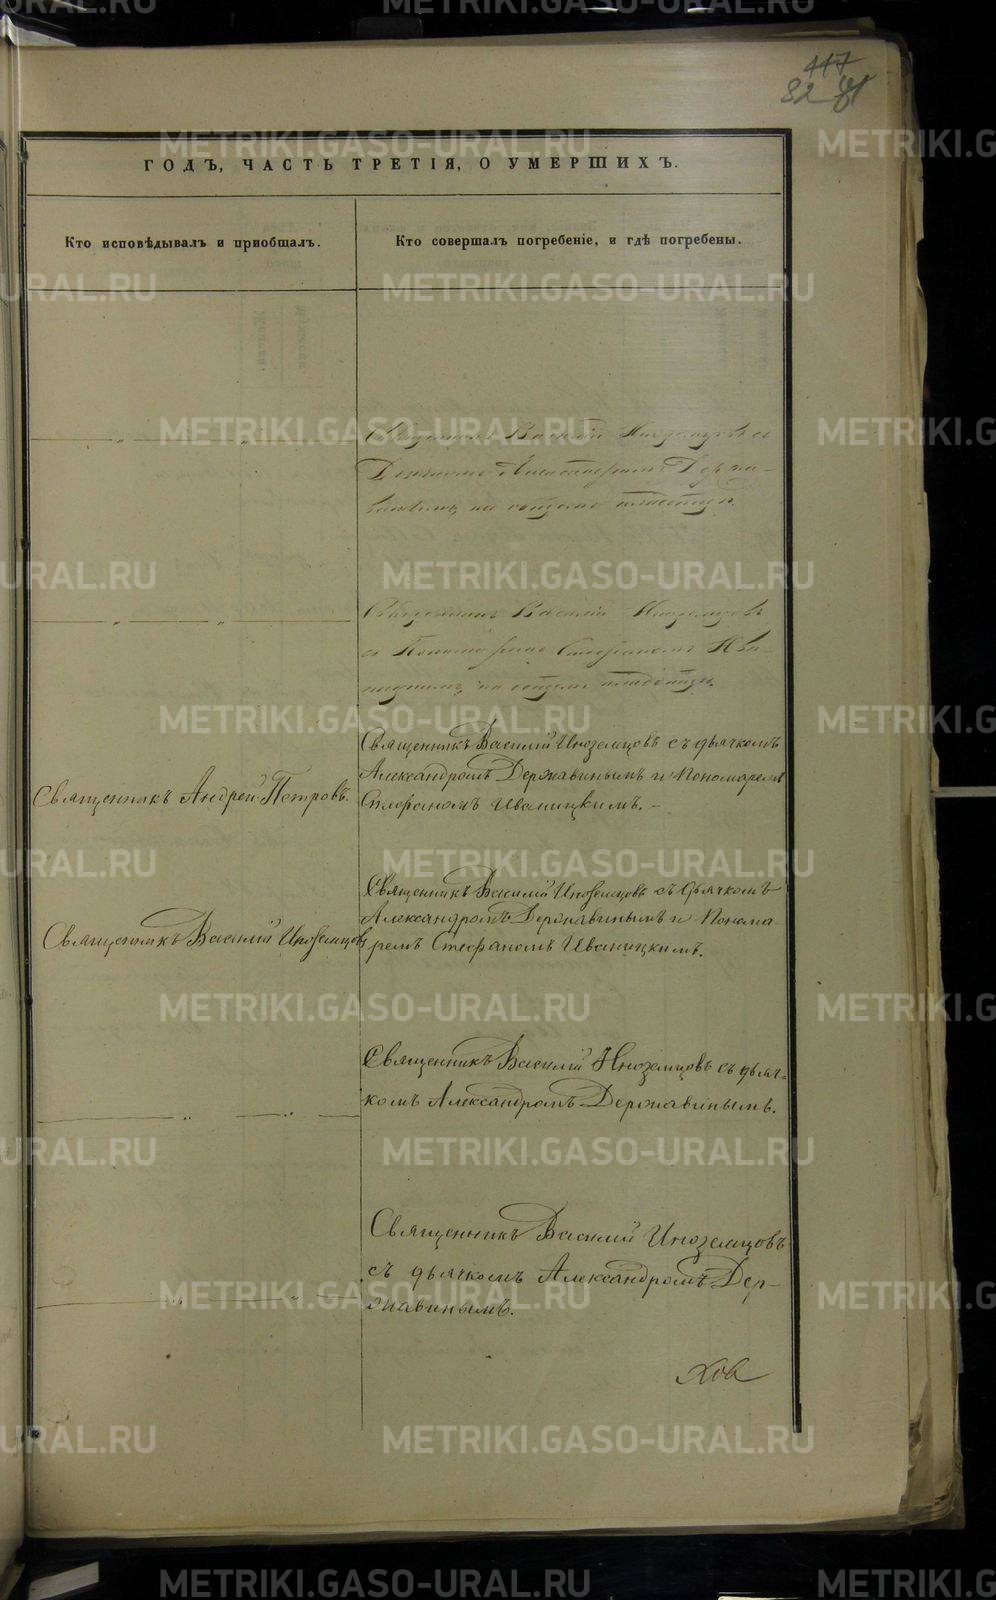 117
82
ГОДЪ, ЧАСТЬ ТРЕТІЯ, О УМЕРШИХЪ.
Кто исповѣдывалъ и пріобщалъ.
Кто совершалъ погребеніе, и гдѣ погребены.
Священникъ Василій Иноземцовъ съ
Дьячкомъ Александромъ Держа-
винымъ на общемъ кладбищѣ.
Священникъ Василій Иноземцовъ
съ Пономаремъ Стефаномъ Ива-
ницкимъ на общемъ кладбищѣ.
Священникъ Андрей Петровъ.
Священникъ Василій Иноземцовъ съ дьячкомъ
Александромъ Державинымъ и Пономаремъ
Стефаномъ Иваницкимъ. –
Священникъ Василій Иноземцовъ
Священникъ Василій Иноземцовъ съ дьячкомъ
Александромъ Державинымъ и Понома-
ремъ Стефаномъ Иваницкимъ.
Священникъ Василій Иноземцовъ съ дьяч-
комъ Александромъ Державинымъ.
Священникъ Василій Иноземцовъ
съ дьячкомъ Александромъ Дер-
жавинымъ.
METRIKI.GASO-URAL.RU